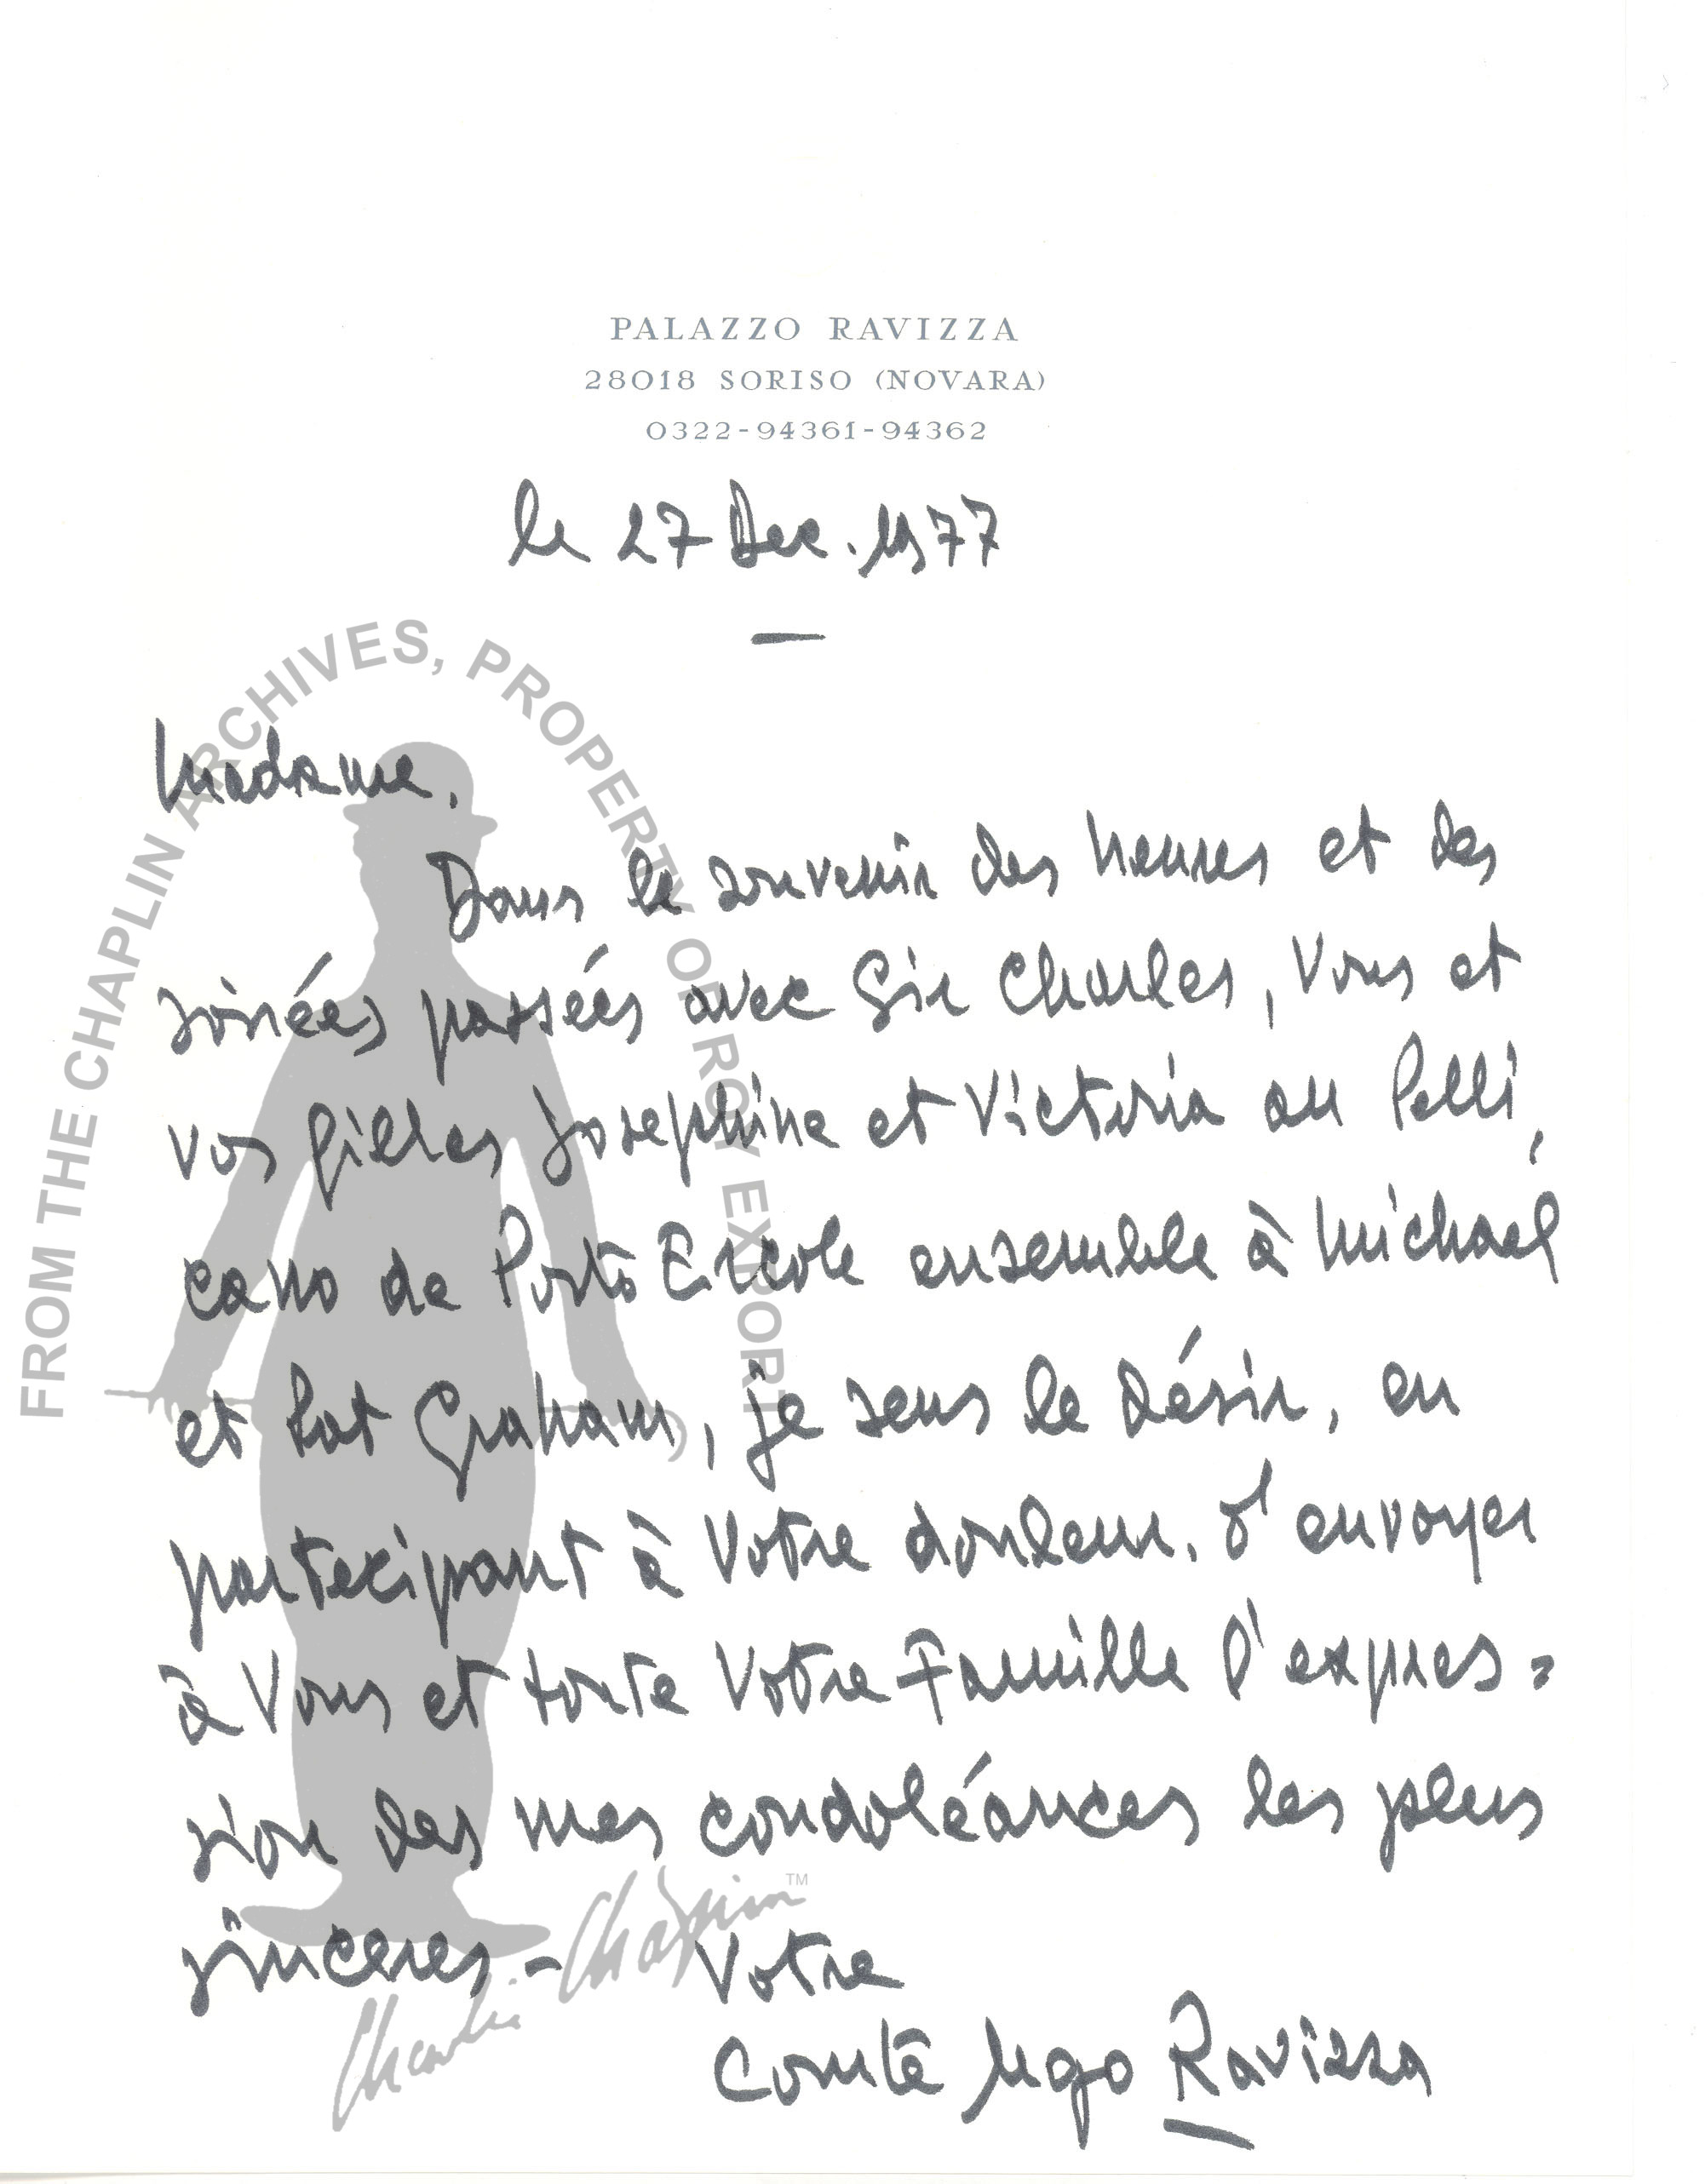 PALAZZO RAVIZZA
28018 SORISO (NOVARA)
0322-94361-94362
le 27 Dec. 1977
—
Madame,
Dans le souvenir des heures et des
soirées passées avec Sir Charles, Vous et
vos filles Josephine et Victoria au Pelli,
cano de Porto Ercole ensemble à Michael
et Pat Graham, je sens le désir, en
partecipant à Votre douleur, d'envoyer
à Vous et toute Votre Famille l'expres=
sion des mes condoléances les plus
sinceres - Votre
Comte Ugo Ravizza
FROM THE CHAPLIN ARCHIVES, PROPERTY OF ROY EXPORT
Charlie Chaplin ™